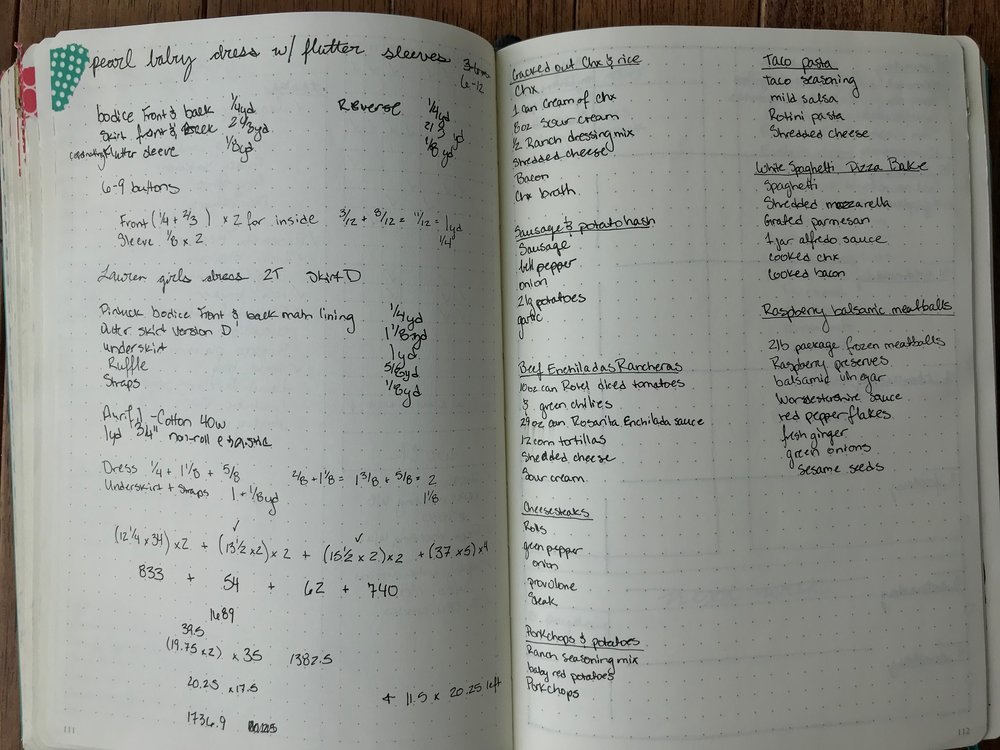 pearl baby dress w/ flutter sleeves 3-6mo
6-12
bodice front & back 1/4yd Reverse 1/4yd
Skirt front & back 2 2/3yd yd
flutter sleeve 1/8yd 1/8 yd
6-9 buttons
Front (1/4 + 2/3 ) x 2 for inside 3/12 + 8/12 = 11/12 = 1yd
Sleeve 1/8 x 2 1/4
Lauren girls dress 2T skirt D
Pintuck bodice front & back main lining 1/4yd
Outer skirt version D 1 1/8yd
underskirt 1yd
Ruffle 5/8yd
Straps 1/8yd
Aurifil - Cotton 40w
1yd 3/4" non-roll elastic
Dress 1/4 + 1 1/8 + 5/8 2/8 + 1 1/8 = 1 3/8 + 5/8 = 2
Underskirt + straps 1 + 1/8yd 1 1/8
(12 1/4 x 34) x 2 + (13 1/2 x 2) x 2 + (15 1/2 x 2) x 2 + (37 x 5) x 4
833 + 54 + 62 + 740
1689
39.5
(19.75 x 2) x 35 1382.5
20.25 x 17.5
4 11.5 x 20.25 left
1736.9
111
Cracked out Chx & rice
Chx
1 can cream of chx
8oz sour cream
1/2 Ranch dressing mix
Shredded cheese
Bacon
Chx broth
Sausage & potato hash
Sausage
bell pepper
onion
2lg potatoes
garlic
Beef Enchiladas Rancheras
10oz can Rotel diced tomatoes
& green chilies
29 oz can Rosarita Enchilada sauce
12 corn tortillas
Shredded cheese
Sour cream
Cheesesteaks
Rolls
green pepper
onion
provolone
Steak
Porkchops & potatoes
Ranch seasoning mix
baby red potatoes
Porkchops
Taco pasta
Taco seasoning
mild salsa
Rotini pasta
Shredded cheese
White Spaghetti Pizza Bake
Spaghetti
Shredded mozzarella
Grated parmesan
1 jar alfredo sauce
cooked chx
cooked bacon
Raspberry balsamic meatballs
2lb package frozen meatballs
Raspberry preserves
balsamic vinegar
Worcestershire sauce
red pepper flakes
fresh ginger
green onions
sesame seeds
112